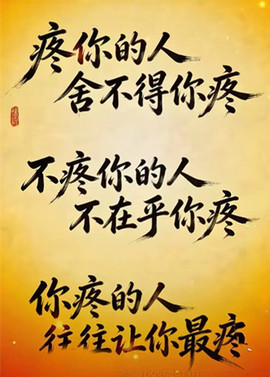 疼你的人
舍不得你疼
不疼你的人
不在乎你疼
你疼的人
往往让你最疼